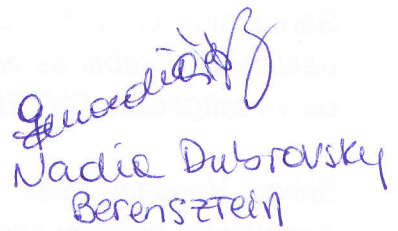 Nadia Dubrovsky
Berensztein